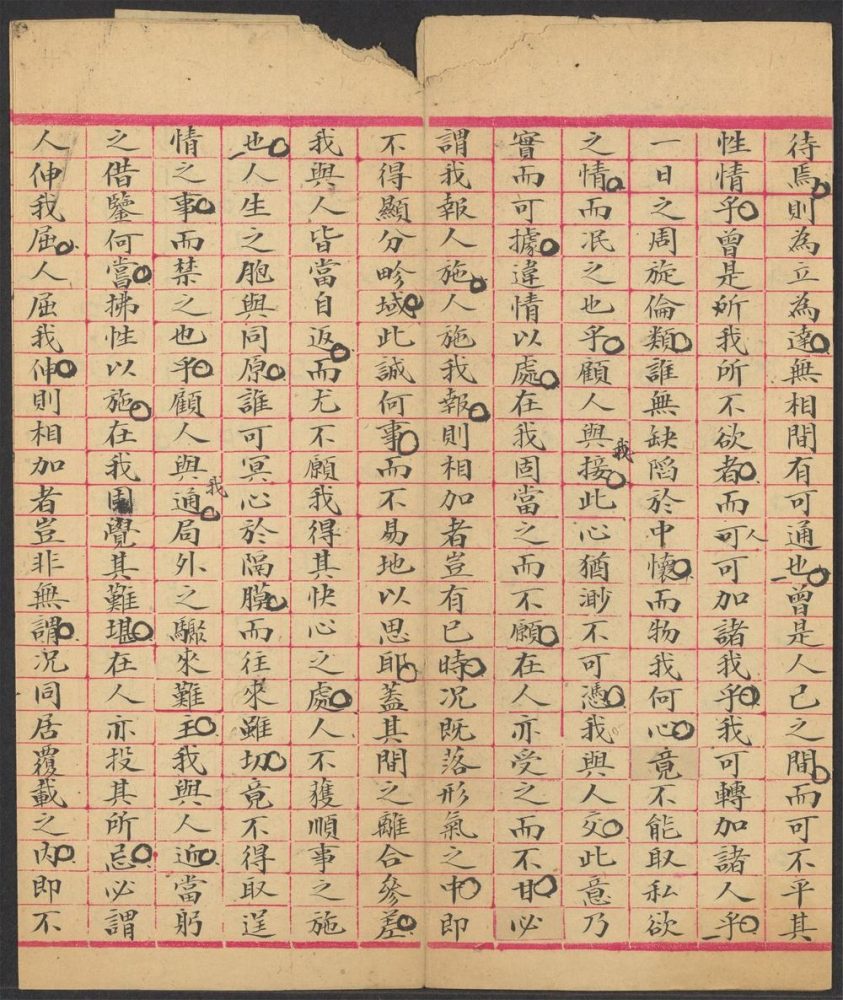 待焉則為立為達無相間有可通也曾是人已之間而可不平其
性情乎曾是所我所不欲者而可人可加諸我乎我可轉加諸人乎
一日之周旋倫類誰無缺陷於中懷而物我何心竟不能取私欲
之情而泯之也乎顧人與我接此心猶渺不可憑我與人交此意乃
實而可據違情以處在我固當之而不願在人亦受之而不甘必
謂我報人施人施我報則相加者豈有已時况既落形氣之中即
不得顯分畛域此誠何事而不易地以思耶蓋其間之離合參差
我與人皆當自返而尤不願我得其快心之處人不獲順事之施
也人生之胞與同原誰可冥心於隔膜而往來雖切竟不得取逞
情之事而禁之也乎顧人與我適局外之驟來難主我與人近當躬
之借鑒何嘗拂性以施在我固覺其難堪在人亦投其所忌必謂
人伸我屈人屈我伸則相加者豈非無謂况同居覆載之內即不